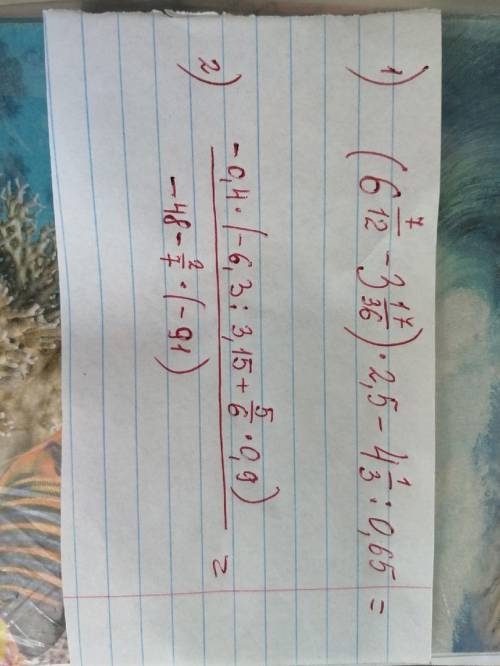 1) (6 7/12 - 3 17/36) · 2,5 - 4 1/3 : 0,65 =
2) -0,4 · (-6,3 : 3,15 + 5/6 · 0,9)
-48 - 2/7 · (-91) =